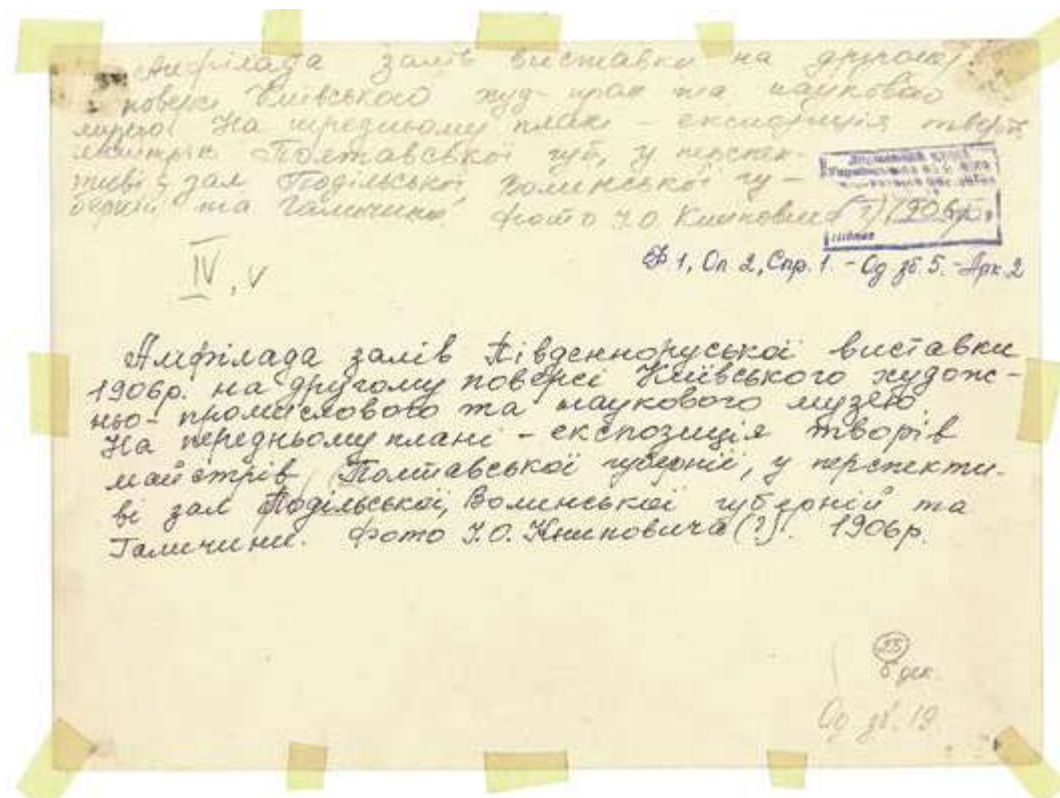 Анфілада залів виставки на другому
поверсі Київського худ-пром та наукового
музею. На передньому плані – експозиція творів
майстрів Полтавської губ, у перспек-
тиві зал Подільської Волинської гу-
берній та Галичини. Фото І.О. Книповича (?) 1906 р.
Державний музей
IV, V
Ф 1, Оп 2, Спр. 1. – Од зб. 5. – Арк. 2
Амфілада залів Південноруської виставки
1906р. на другому поверсі Київського худож-
ньо-промислового та наукового музею.
На передньому плані – експозиція творів
майстрів Полтавської губернії, у перспекти-
ві зал Подільської, Волинської губерній та
Галичини. Фото І.О. Книповича (?). 1906р.
Од зб. 19